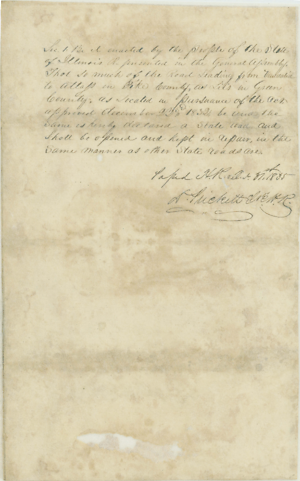 Sec 1 Be it enacted by the people of the State
of Illinois represented in the General Assembly
That so much of the road leading from
to in Pike County, as lies in Green
County, as located in pursuance of the act
approved be and the
same is hereby declared a State road and
shall be opened and kept in repair, in the
same manner as other State roads are
1835
Prickett